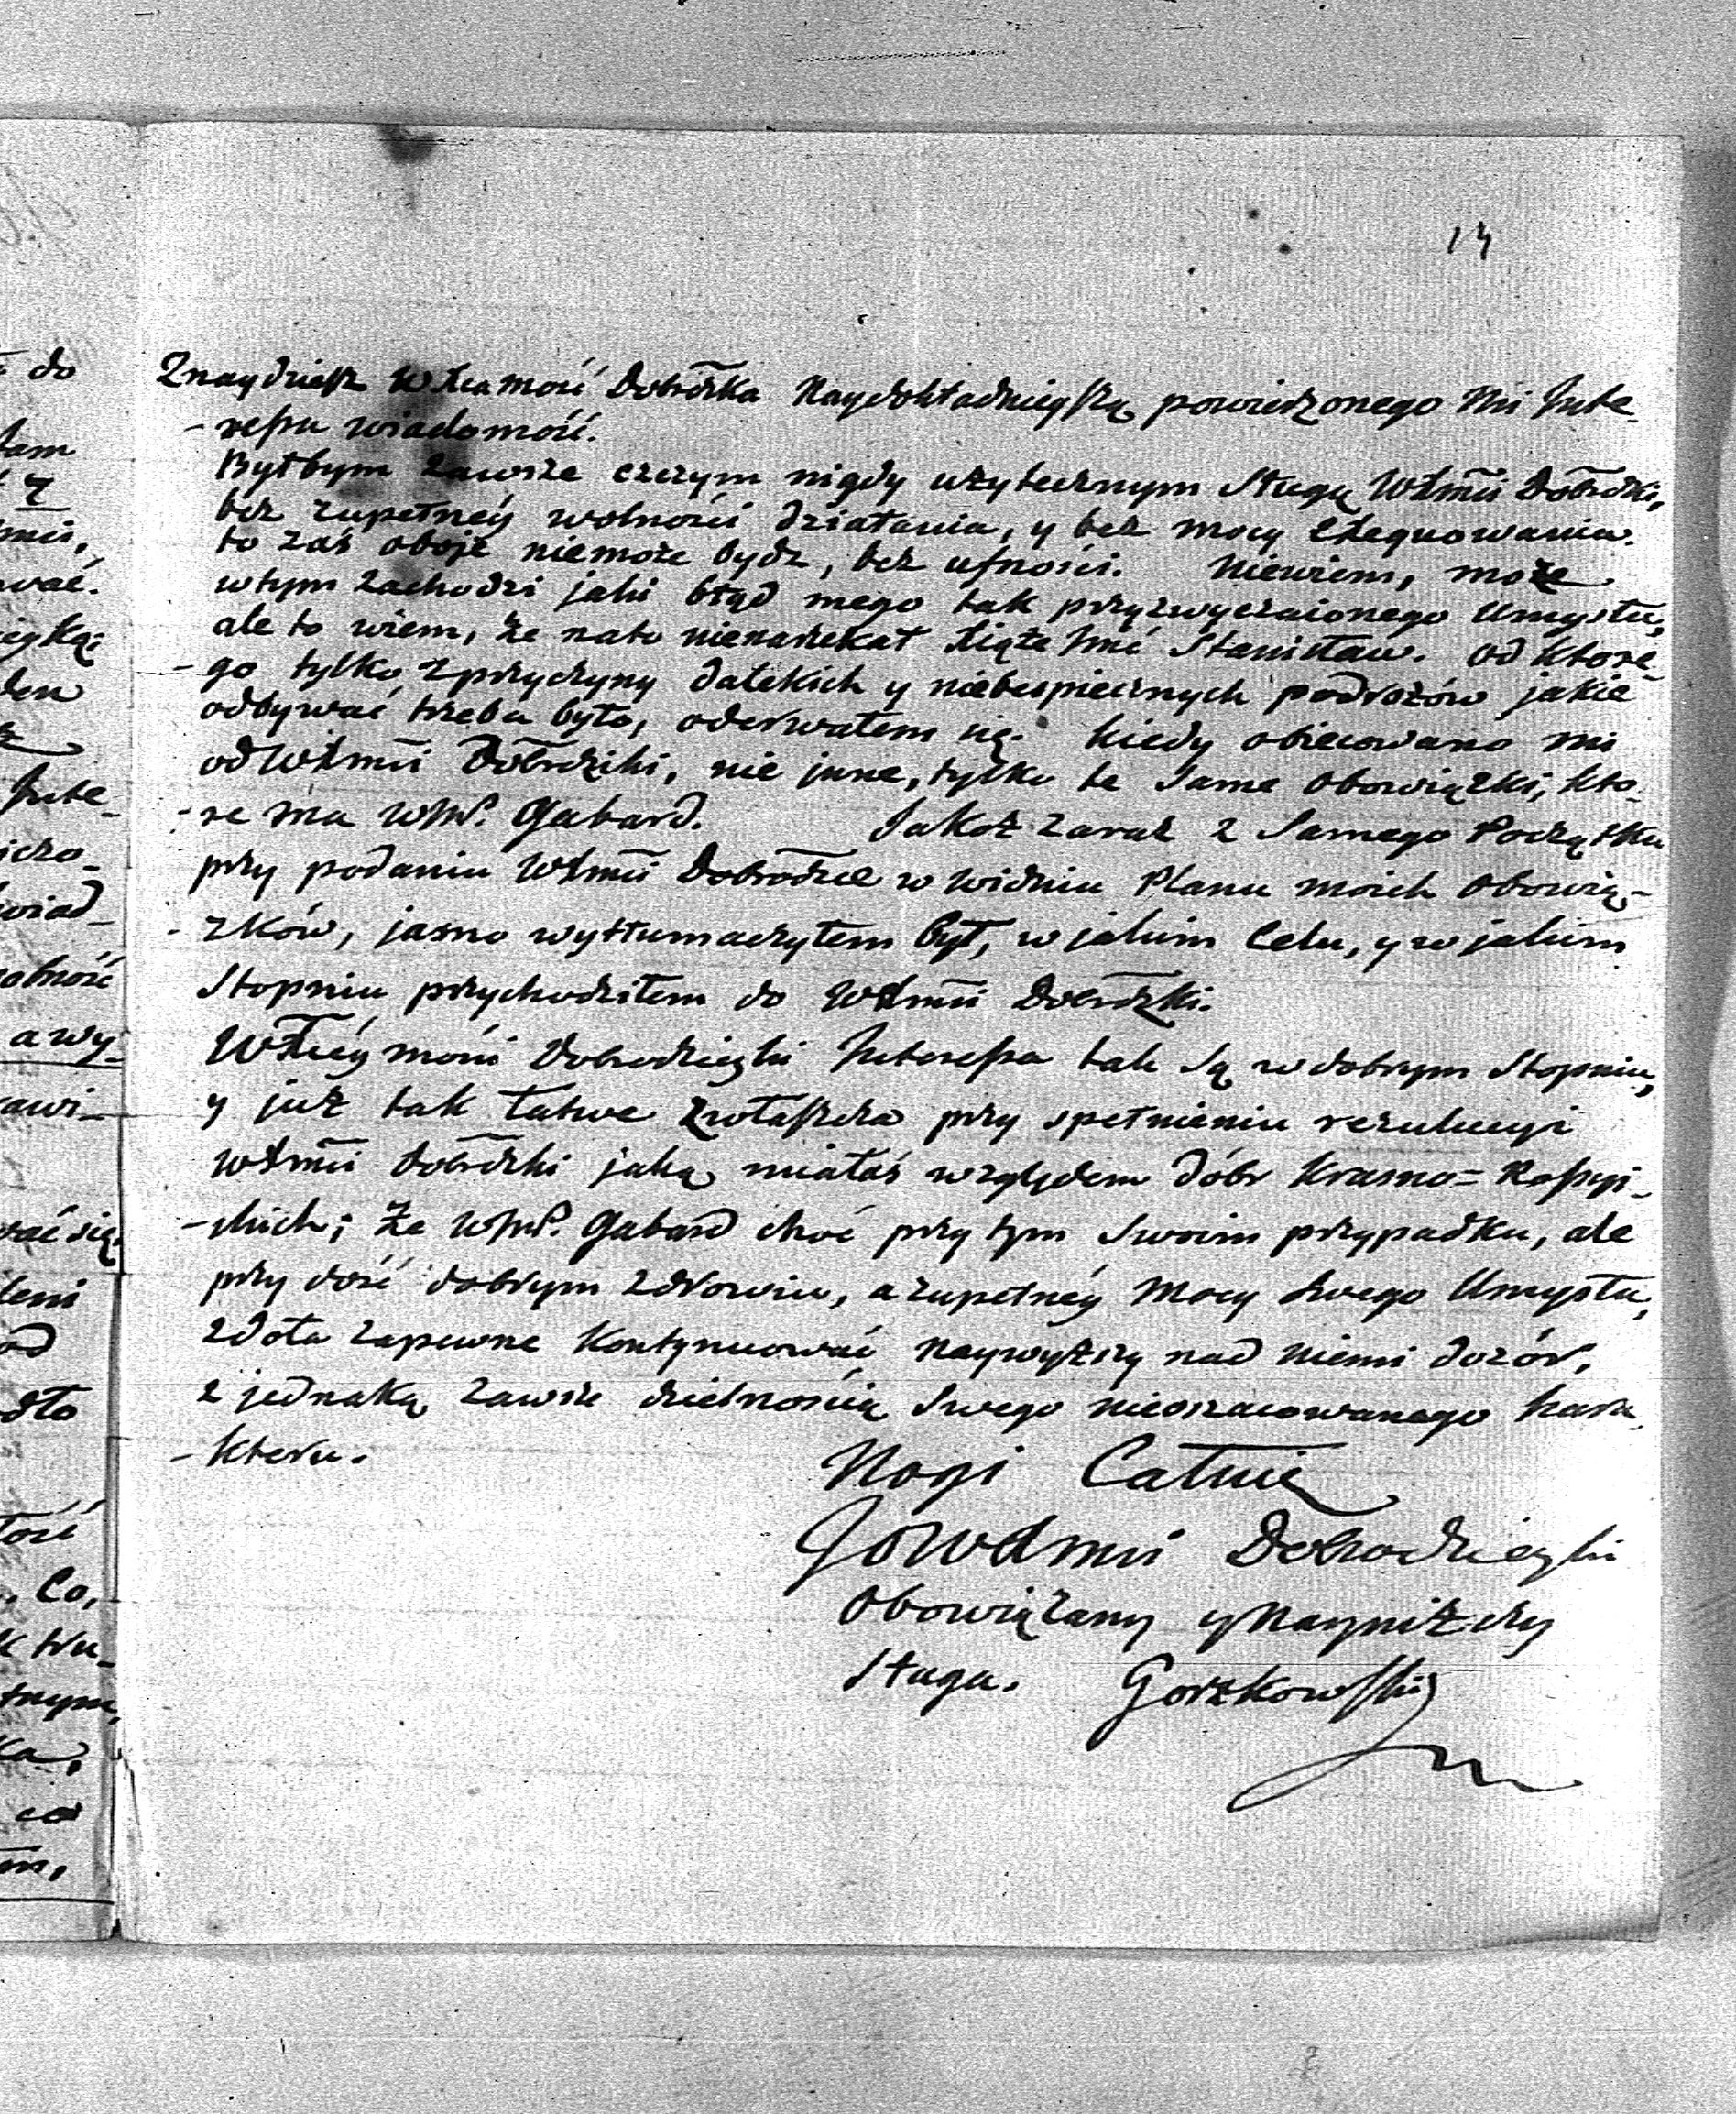 14
Znaydziesz WXcamość Dobrdzka Naydokładnieyszą powierzonego mi Inte-
-ressu wiadomość.
Byłbym zawsze czczym nigdy użytecznym Sługą WXmći Dobrdzki,
bez zupełnéy wolności działania, y bez mocy exequowania.
to zaś oboje niemoże bydź, bez ufności. Niewiem, może
wtym zachodzi jaki błąd mego tak przyzwyczaionego Umysłu,
ale to wiem, że nato nienarzekał Xiąże Jmć Stanisław. od ktore-
-go tylko z przyczyny dalekich y niebespiecznych podrożów jakie
odbywać trzeba było, oderwałem się. kiedy obiecowano mi
od WXmći Dobrdziki, nie inne, tylko te Same obowiązki, kto-
-re ma WJmP. Gabard. Jakoż zaraz z Samego Początku
przy podaniu WXmći Dobrodzce w Widniu Planu moich obowią-
-zków, jasno wytłumaczyłem był, w jakim Celu, y w jakim
Stopniu przychodziłem do WXmći Dobrdzki.
WXcéy mości Dobrodzieyki Interessa tak są w dobrym Stopniu,
y już tak łatwe zwłaszcza przy spełnieniu rezulucyi
WXmći Dobrdzki jaką miałaś względem dóbr Krasno=Rossyi-
-skich; że WJmP. Gabard choć przy tym Swoim przypadku, ale
przy dość dobrym zdrowiu, a zupełnéy Mocy Swego Umysłu,
zdoła zapewne Kontynuować Naywyższy nad niemi dozór,
z jednaką zawsze dzielnością Swego nieoszacowanego kara-
-kteru.
Nogi Całuię
JOWXmći Dobrodzieyki
Obowiązany y Nayniższy
Sługa. Gorzkowski